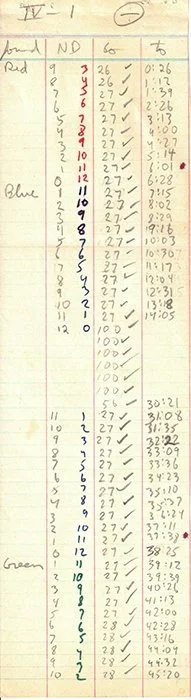 IV - 1
found ND
Red 9 3 26 ✓ 0:26
8 4 26 ✓ 1:12
7 5 27 ✓ 1:39
6 6 27 ✓ 2:26
5 7 27 ✓ 3:13
4 8 27 ✓ 4:00
3 9 27 ✓ 4:27
2 10 27 ✓ 5:14
1 11 27 ✓ 6:01
0 12 27 ✓ 6:28
Blue 1 11 27 ✓ 7:15
2 10 27 ✓ 8:02
3 9 27 ✓ 8:29
4 8 27 ✓ 9:16
5 7 27 ✓ 10:03
6 6 27 ✓ 10:30
7 5 27 ✓ 11:17
8 4 27 ✓ 12:04
9 3 27 ✓ 12:31
10 2 27 ✓ 13:18
11 1 27 ✓ 14:05
12 0 100 ✓
100 ✓
100 ✓
100 ✓
100 ✓
56 ✓ 30:21
11 1 27 ✓ 31:08
10 2 27 ✓ 31:35
9 3 27 ✓ 32:22
8 4 27 ✓ 33:09
7 5 27 ✓ 33:36
6 6 27 ✓ 34:23
5 7 27 ✓ 35:10
4 8 27 ✓ 35:37
3 9 27 ✓ 36:24
2 10 27 ✓ 37:11
1 11 27 ✓ 37:38
0 12 27 ✓ 38:25
Green 1 11 27 ✓ 39:12
2 10 27 ✓ 39:39
3 9 27 ✓ 40:26
4 8 27 ✓ 41:13
5 7 27 ✓ 42:00
6 6 28 ✓ 42:28
7 5 28 ✓ 43:16
8 4 28 ✓ 44:04
9 3 28 ✓ 44:32
10 2 28 ✓ 45:20